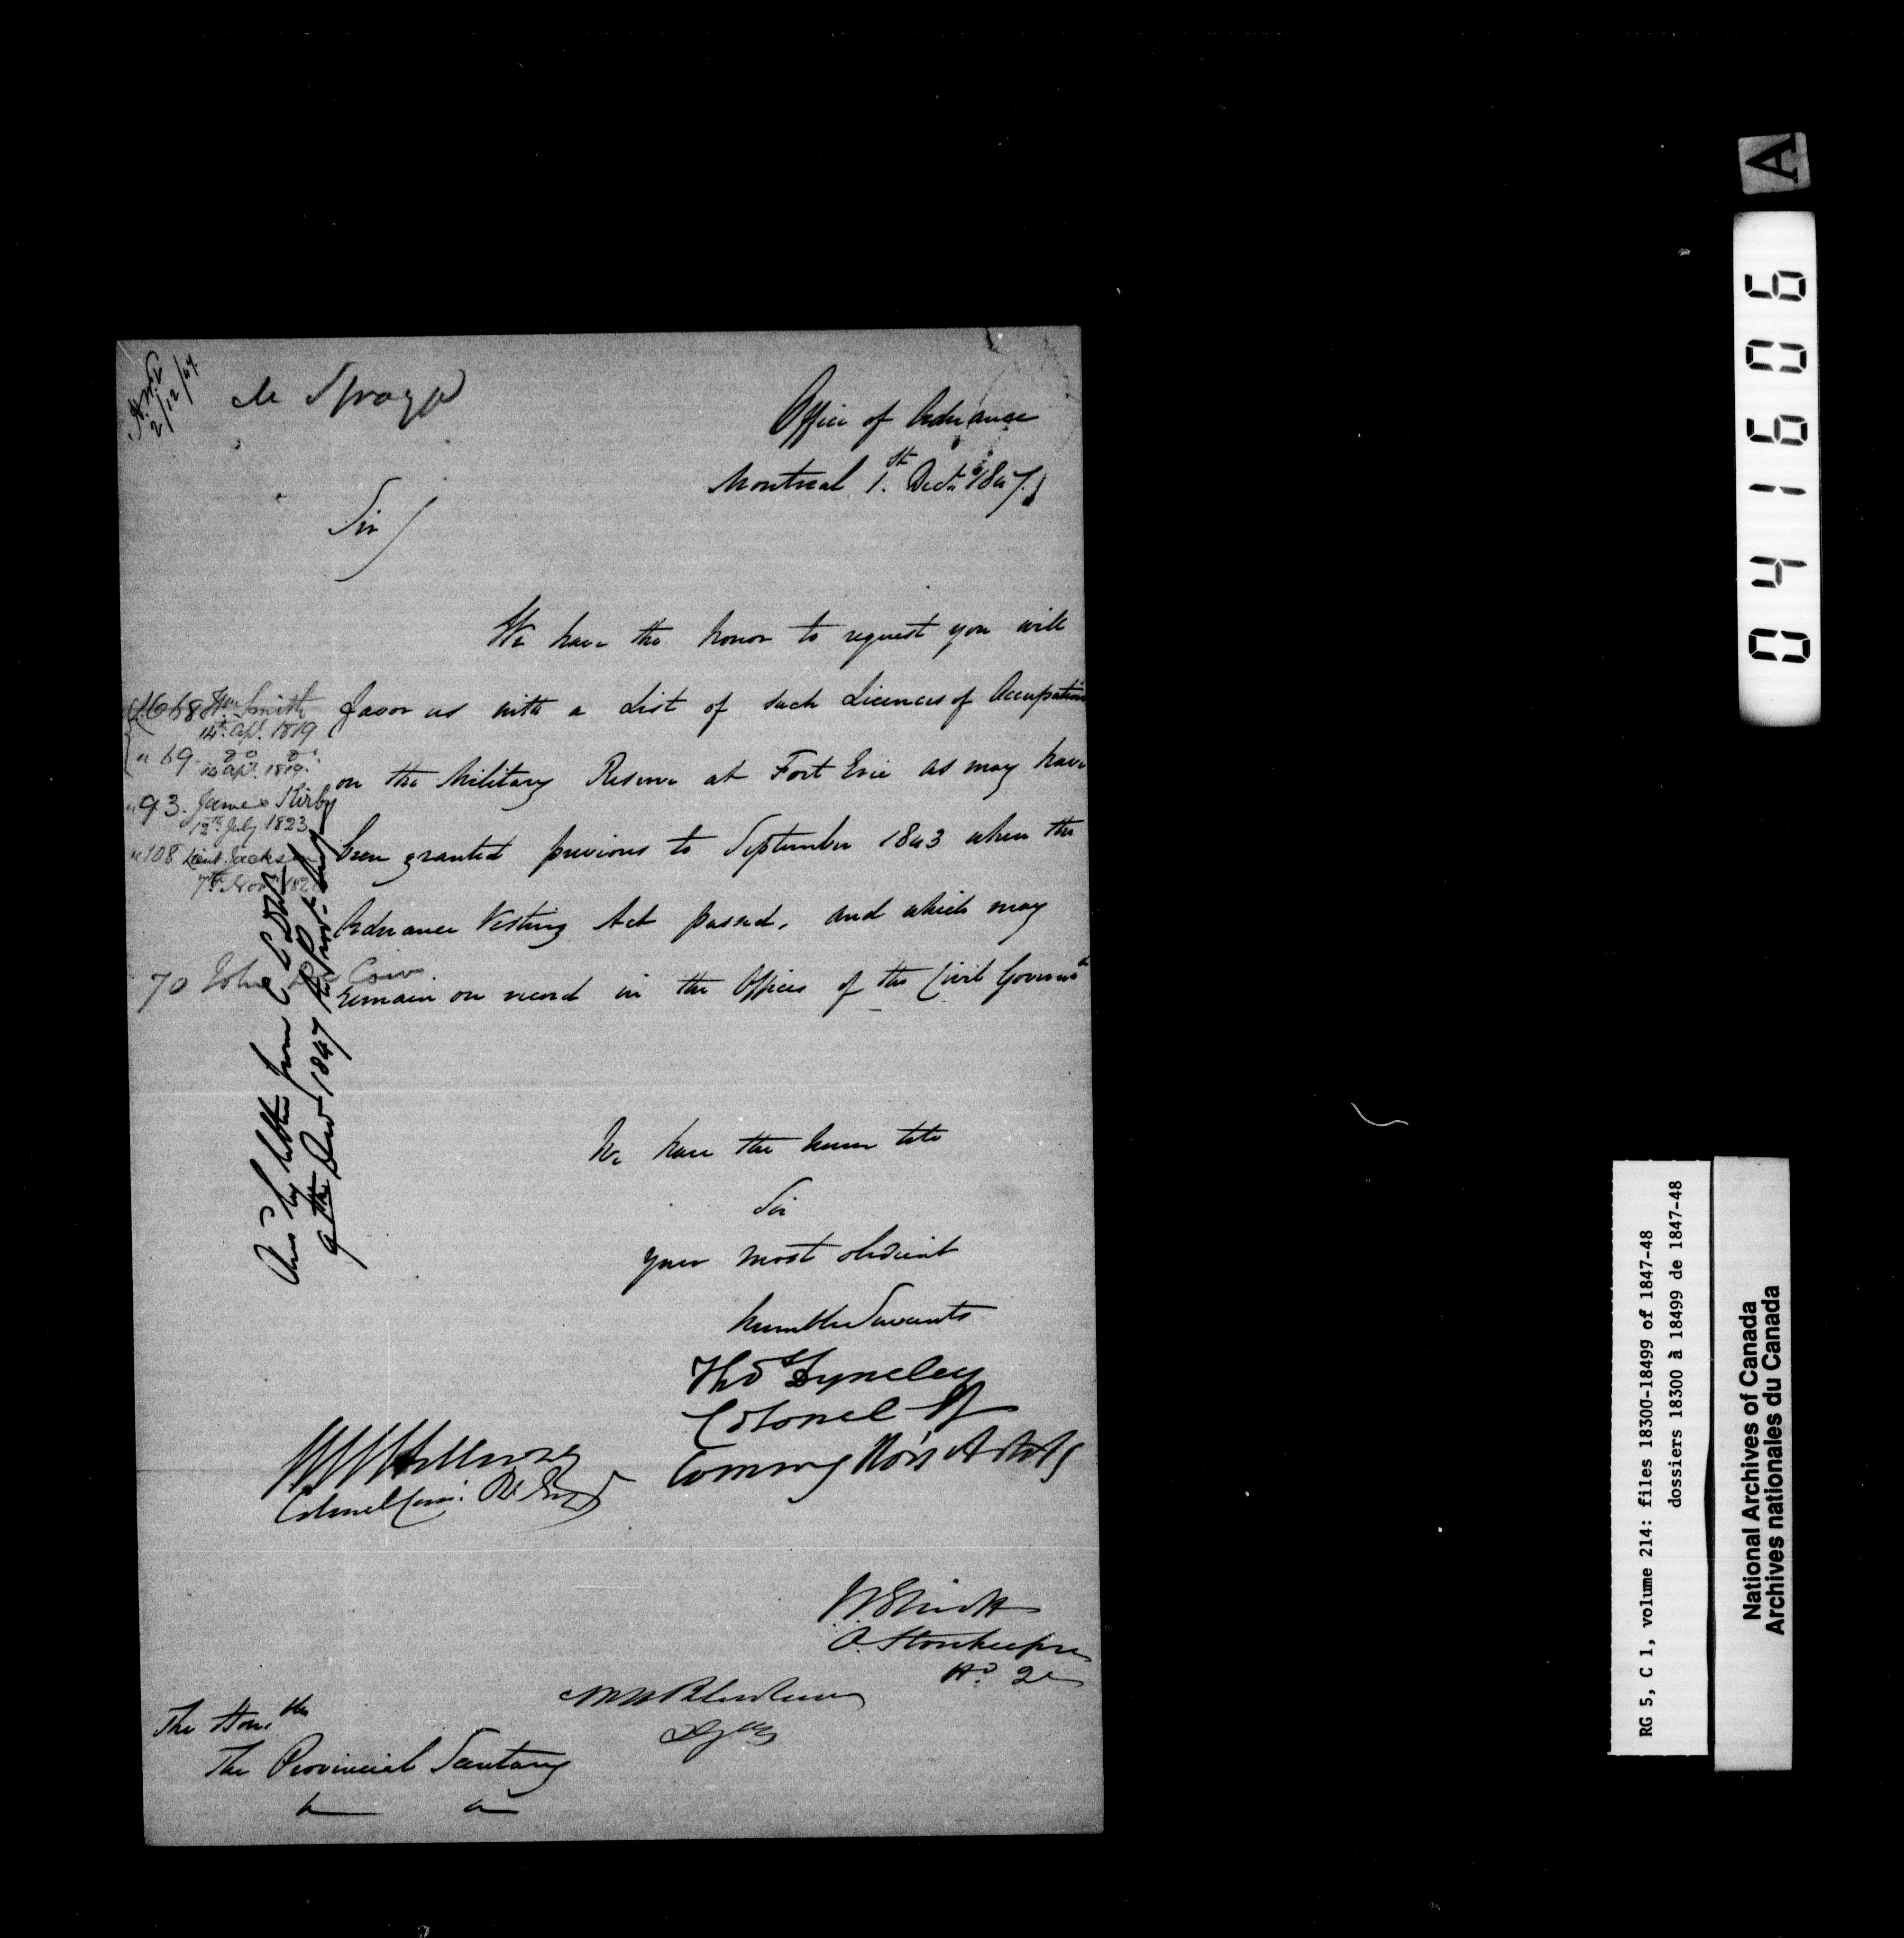 2/12/47
Mr Spragge
Office of Ordnance
Montreal 1st. Decr. 1847.
Sir
We have the honor to request you will
favor us with a List of such Licences of Occupation
on the Military Reserve at Fort Erie as may have
been granted previous to September 1843 when the
Ordnance Vesting Act passed, and which may
remain on record in the Offices of the Civil Governmt
68 Wm Smith
14th. Apl. 1819
" 69. do do
14 Apl. 1819.
" 93. James Kirby
12th July 1823
" 108 Lieut. Jackson
7th Novr
70 John
Ansd by letter from C C L Dept
9th Decr 1847
We have the honor to be
Sir
your most obedient
humble Servants
Thos Dyneley
Colonel
Commg Rl Artily
Colonel Com: Rl Engrs
O. Storekeeper
The Honble
The Provincial Secretary
RG 5, C 1, volume 214: files 18300-18499 of 1847-48
dossiers 18300 à 18499 de 1847-48
National Archives of Canada
Archives nationales du Canada
041606
A